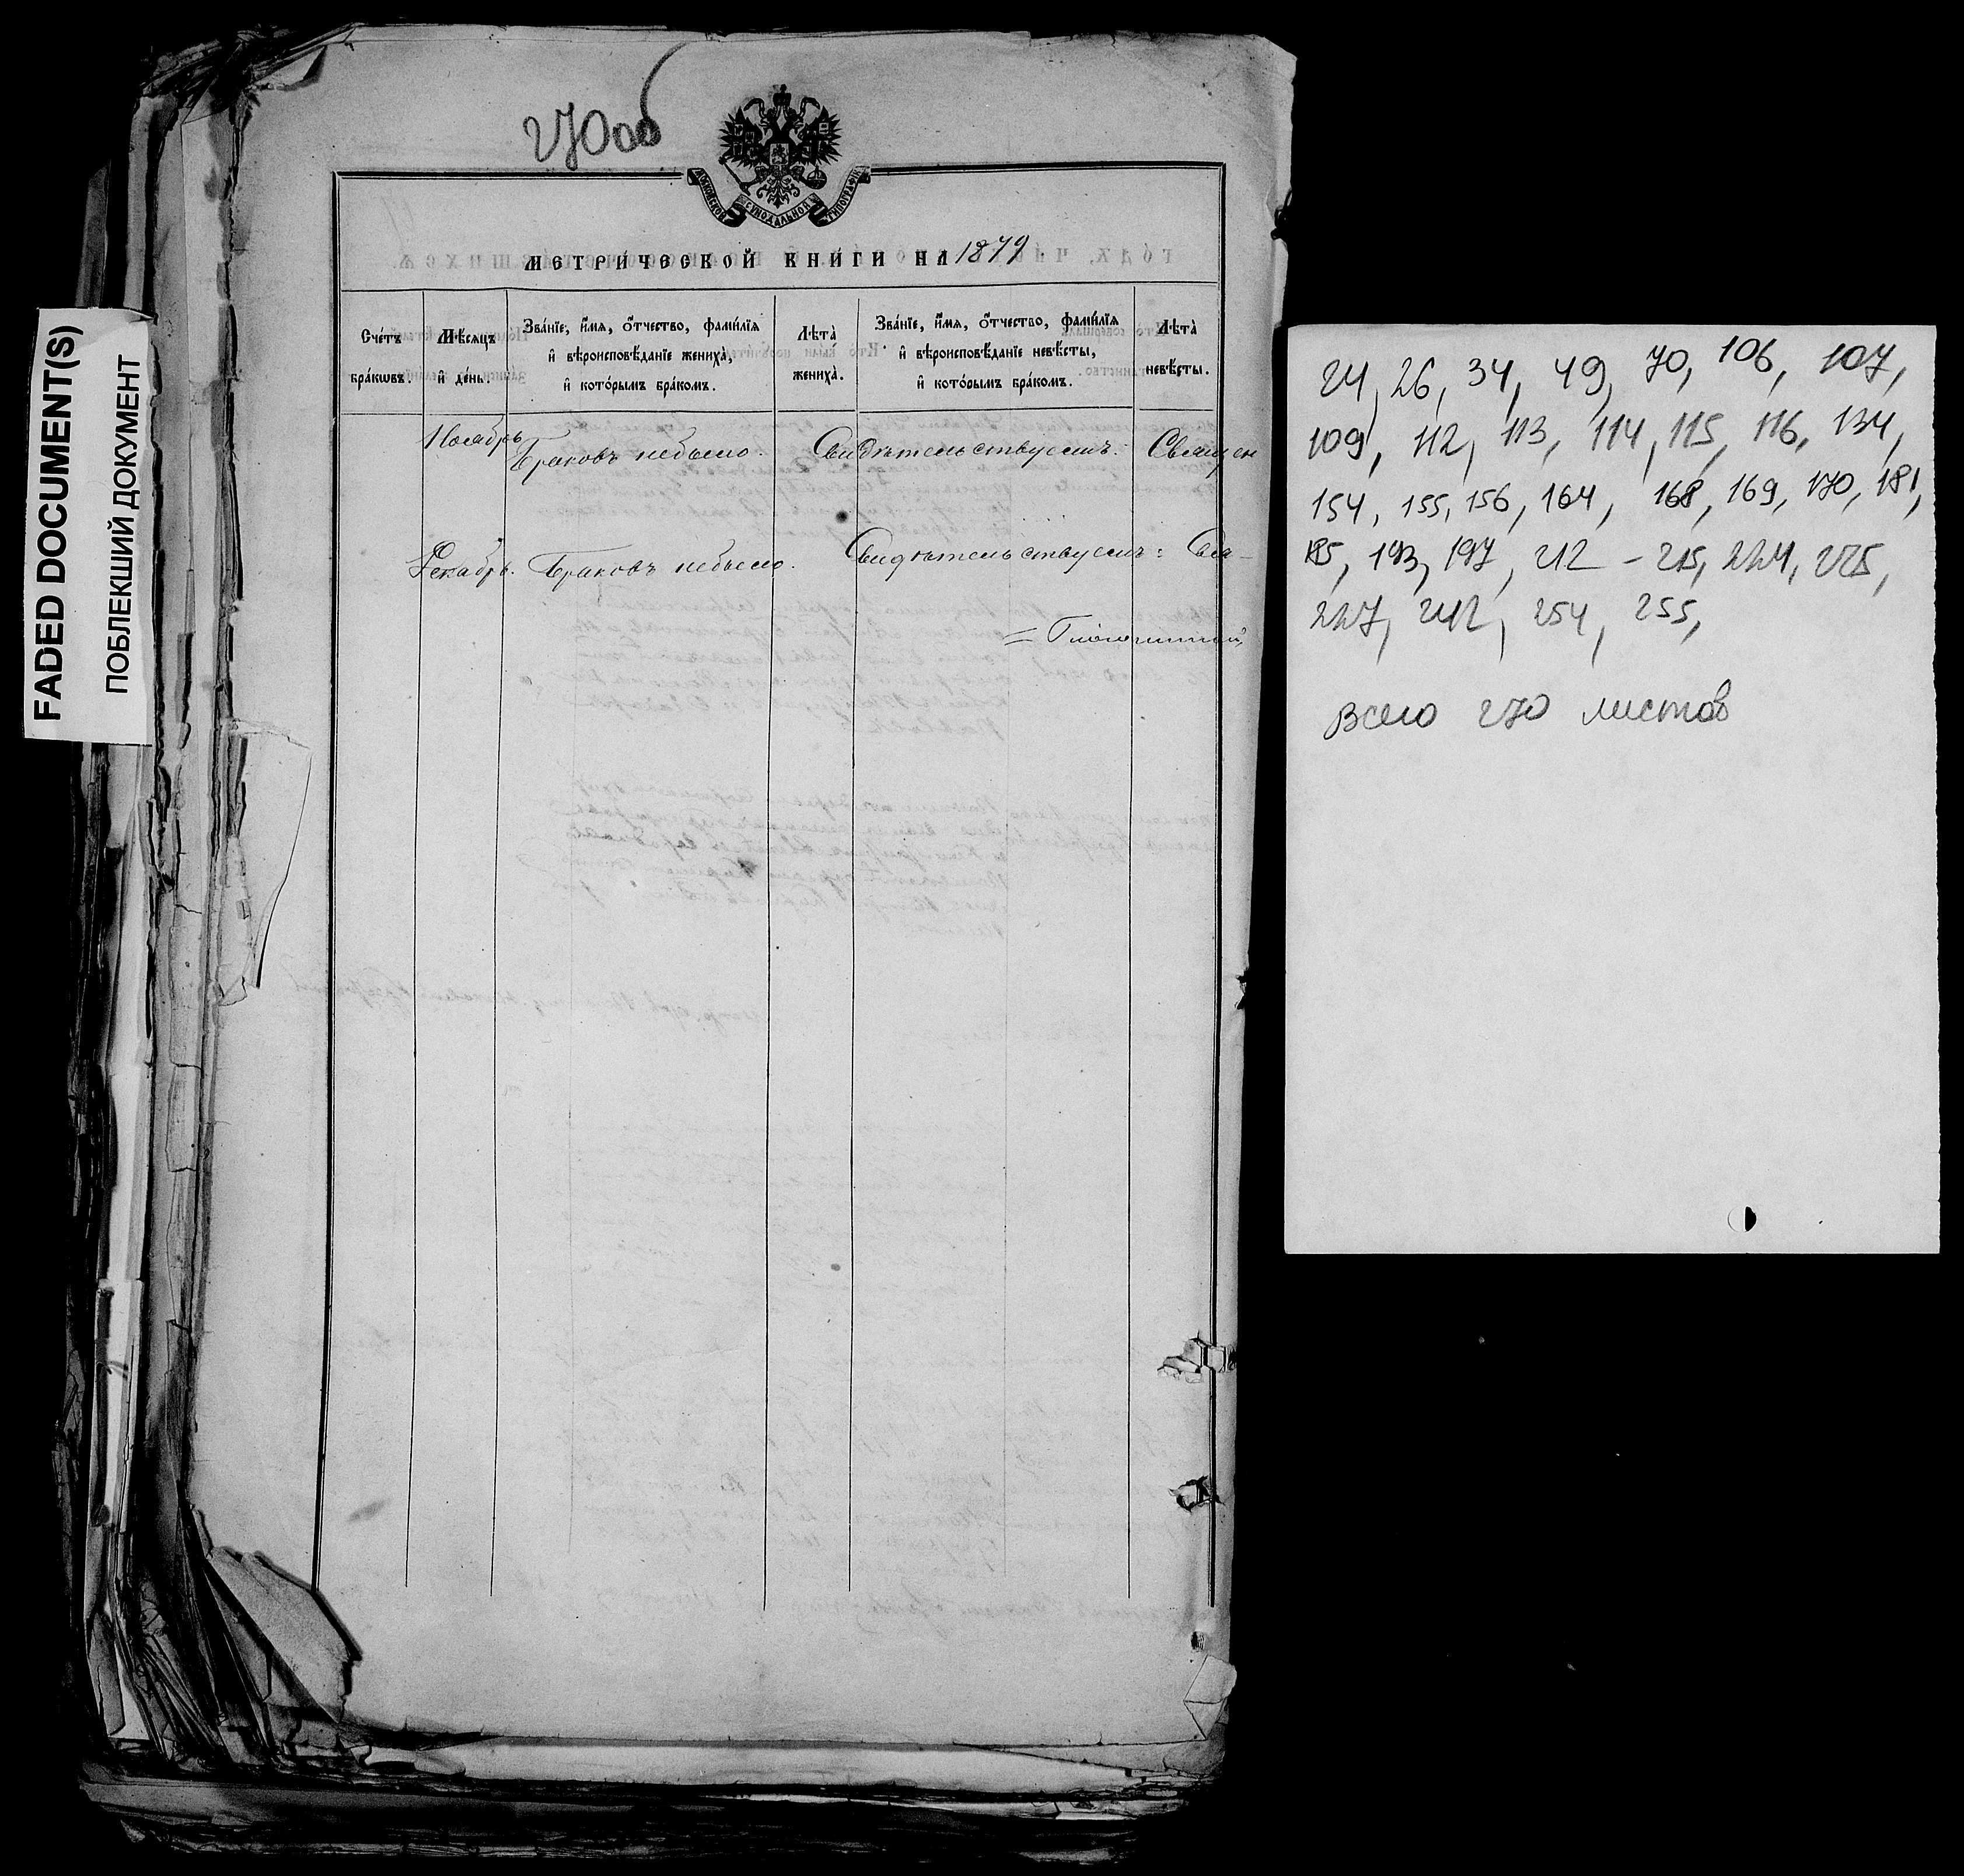 FADED DOCUMENT(S)
ПОБЛЕКШИЙ ДОКУМЕНТ
270об
МОСКОВСКОЙ СѴНОДАЛЬНОЙ ТИПОГРАФІИ
МЕТРИ́ЧЕСКОЙ КНИ́ГИ НА 1879
Сче́тъ бра́кωвъ.
Мѣ́сяцъ и҆ де́нь.
Зва́нїе, и҆́мѧ, ѻ҆́тчество, фами́лїѧ и҆ вѣроисповѣ́данїе жениха̀, и҆ кото́рымъ бра́комъ.
Лѣ́та жениха̀.
Зва́нїе, и҆́мѧ, ѻ҆́тчество, фами́лїѧ и҆ вѣроисповѣ́данїе невѣ́сты, и҆ кото́рымъ бра́комъ.
Лѣ́та невѣ́сты.
Ноябрь Браковъ небыло. Свидѣтельствуемъ: Священ
Декабрь. Браковъ небыло. Свидѣтельствуемъ: Свя-
24, 26, 34, 49, 70, 106, 107,
109, 112, 113, 114, 115, 116, 134,
154, 155, 156, 164, 168, 169, 170, 181,
185, 193, 197, 212 – 215, 224, 225,
227, 242, 254, 255,
Всего 270 листов